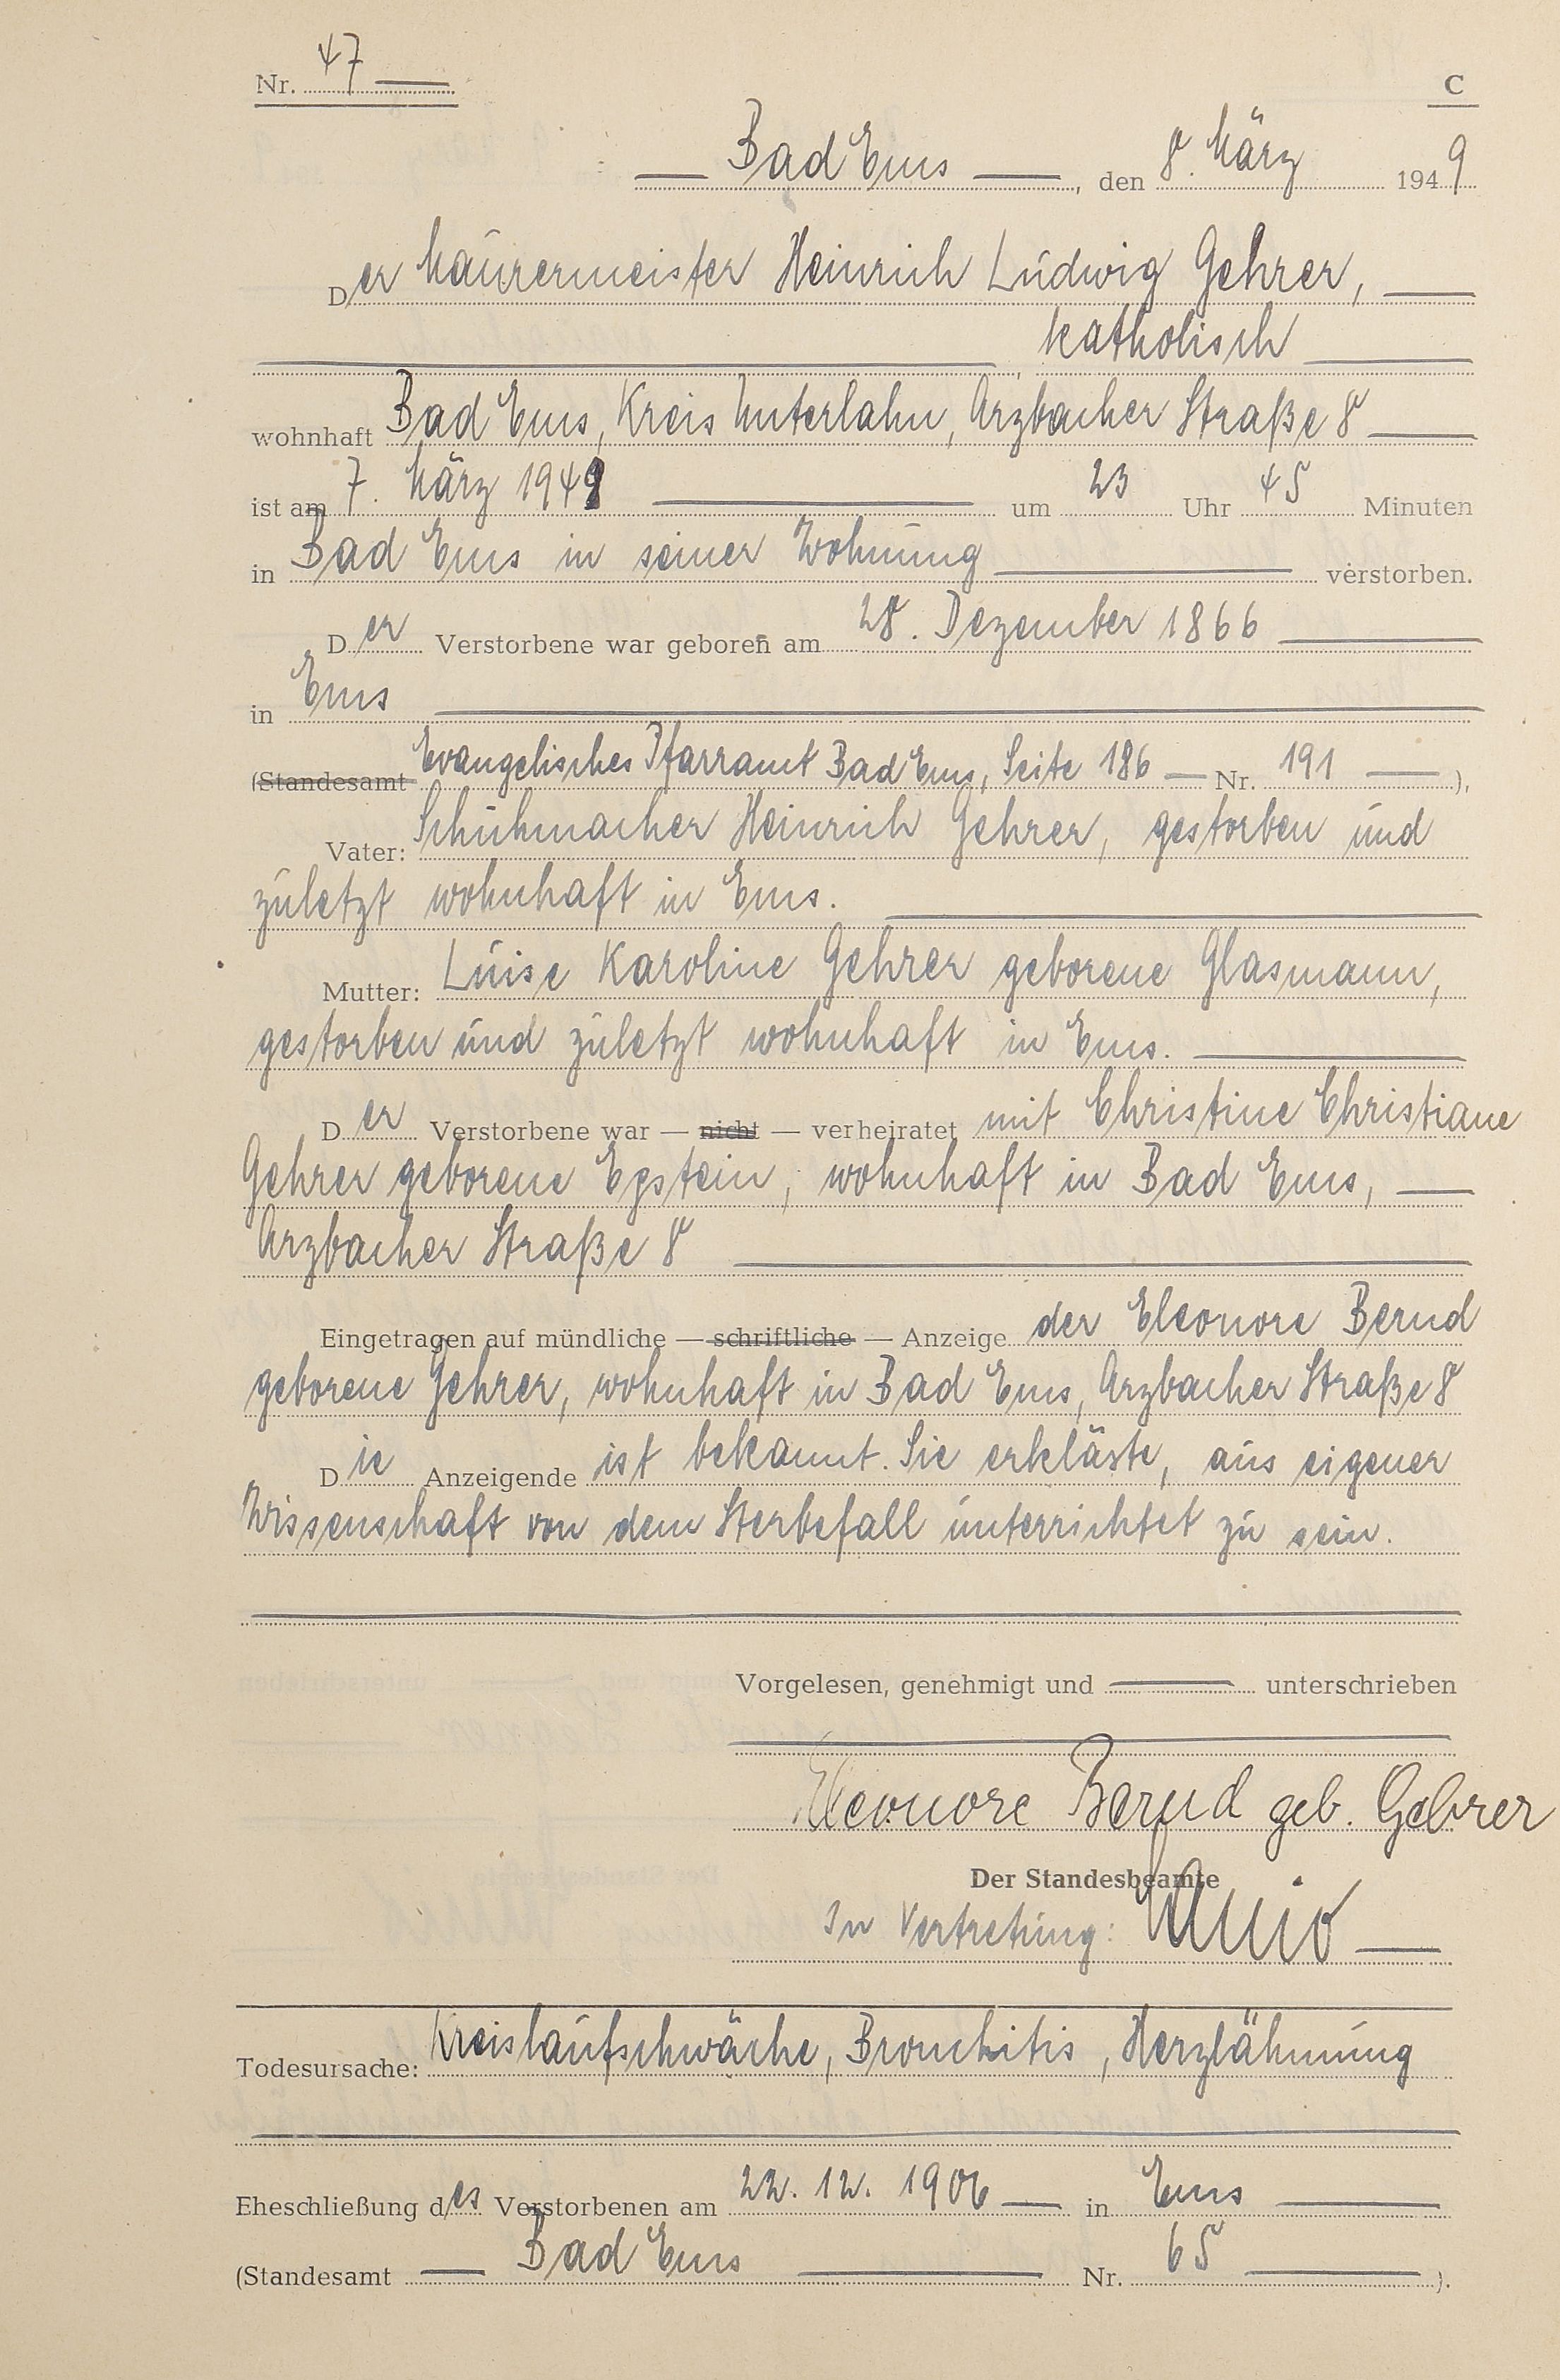 Nr. 47
C
Bad Ems, den 8. März 1949
Der Maurermeister Heinrich Ludwig Gehrer,
katholisch
wohnhaft Bad Ems, Kreis Unterlahn, Arzbacher Straße 8
ist am 7. März 1949 um 23 Uhr 45 Minuten
in Bad Ems in seiner Wohnung verstorben.
Der Verstorbene war geboren am 28. Dezember 1866
in Ems
(Standesamt Evangelisches Pfarramt Bad Ems, Seite 186 — Nr. 191 —),
Vater: Schuhmacher Heinrich Gehrer, gestorben und
zuletzt wohnhaft in Ems.
Mutter: Luise Karoline Gehrer geborene Glasmann,
gestorben und zuletzt wohnhaft in Ems.
Der Verstorbene war — nicht — verheiratet mit Christine Christiane
Gehrer geborene Egstein, wohnhaft in Bad Ems,
Arzbacher Straße 8
Eingetragen auf mündliche — schriftliche — Anzeige der Eleonore Bernd
geborene Gehrer, wohnhaft in Bad Ems, Arzbacher Straße 8
Die Anzeigende ist bekannt. Sie erkläste, aus eigener
Wissenschaft von dem Sterbefall unterrichtet zu sein.
Vorgelesen, genehmigt und unterschrieben
Eleonore Bernd geb. Gehrer
Der Standesbeamte
In Vertretung:
Todesursache: Kreislaufschwäche, Bronchitis, Herzlähmung
Eheschließung des Verstorbenen am 22. 12. 1906 — in Ems
(Standesamt — Bad Ems — Nr. 65 —).